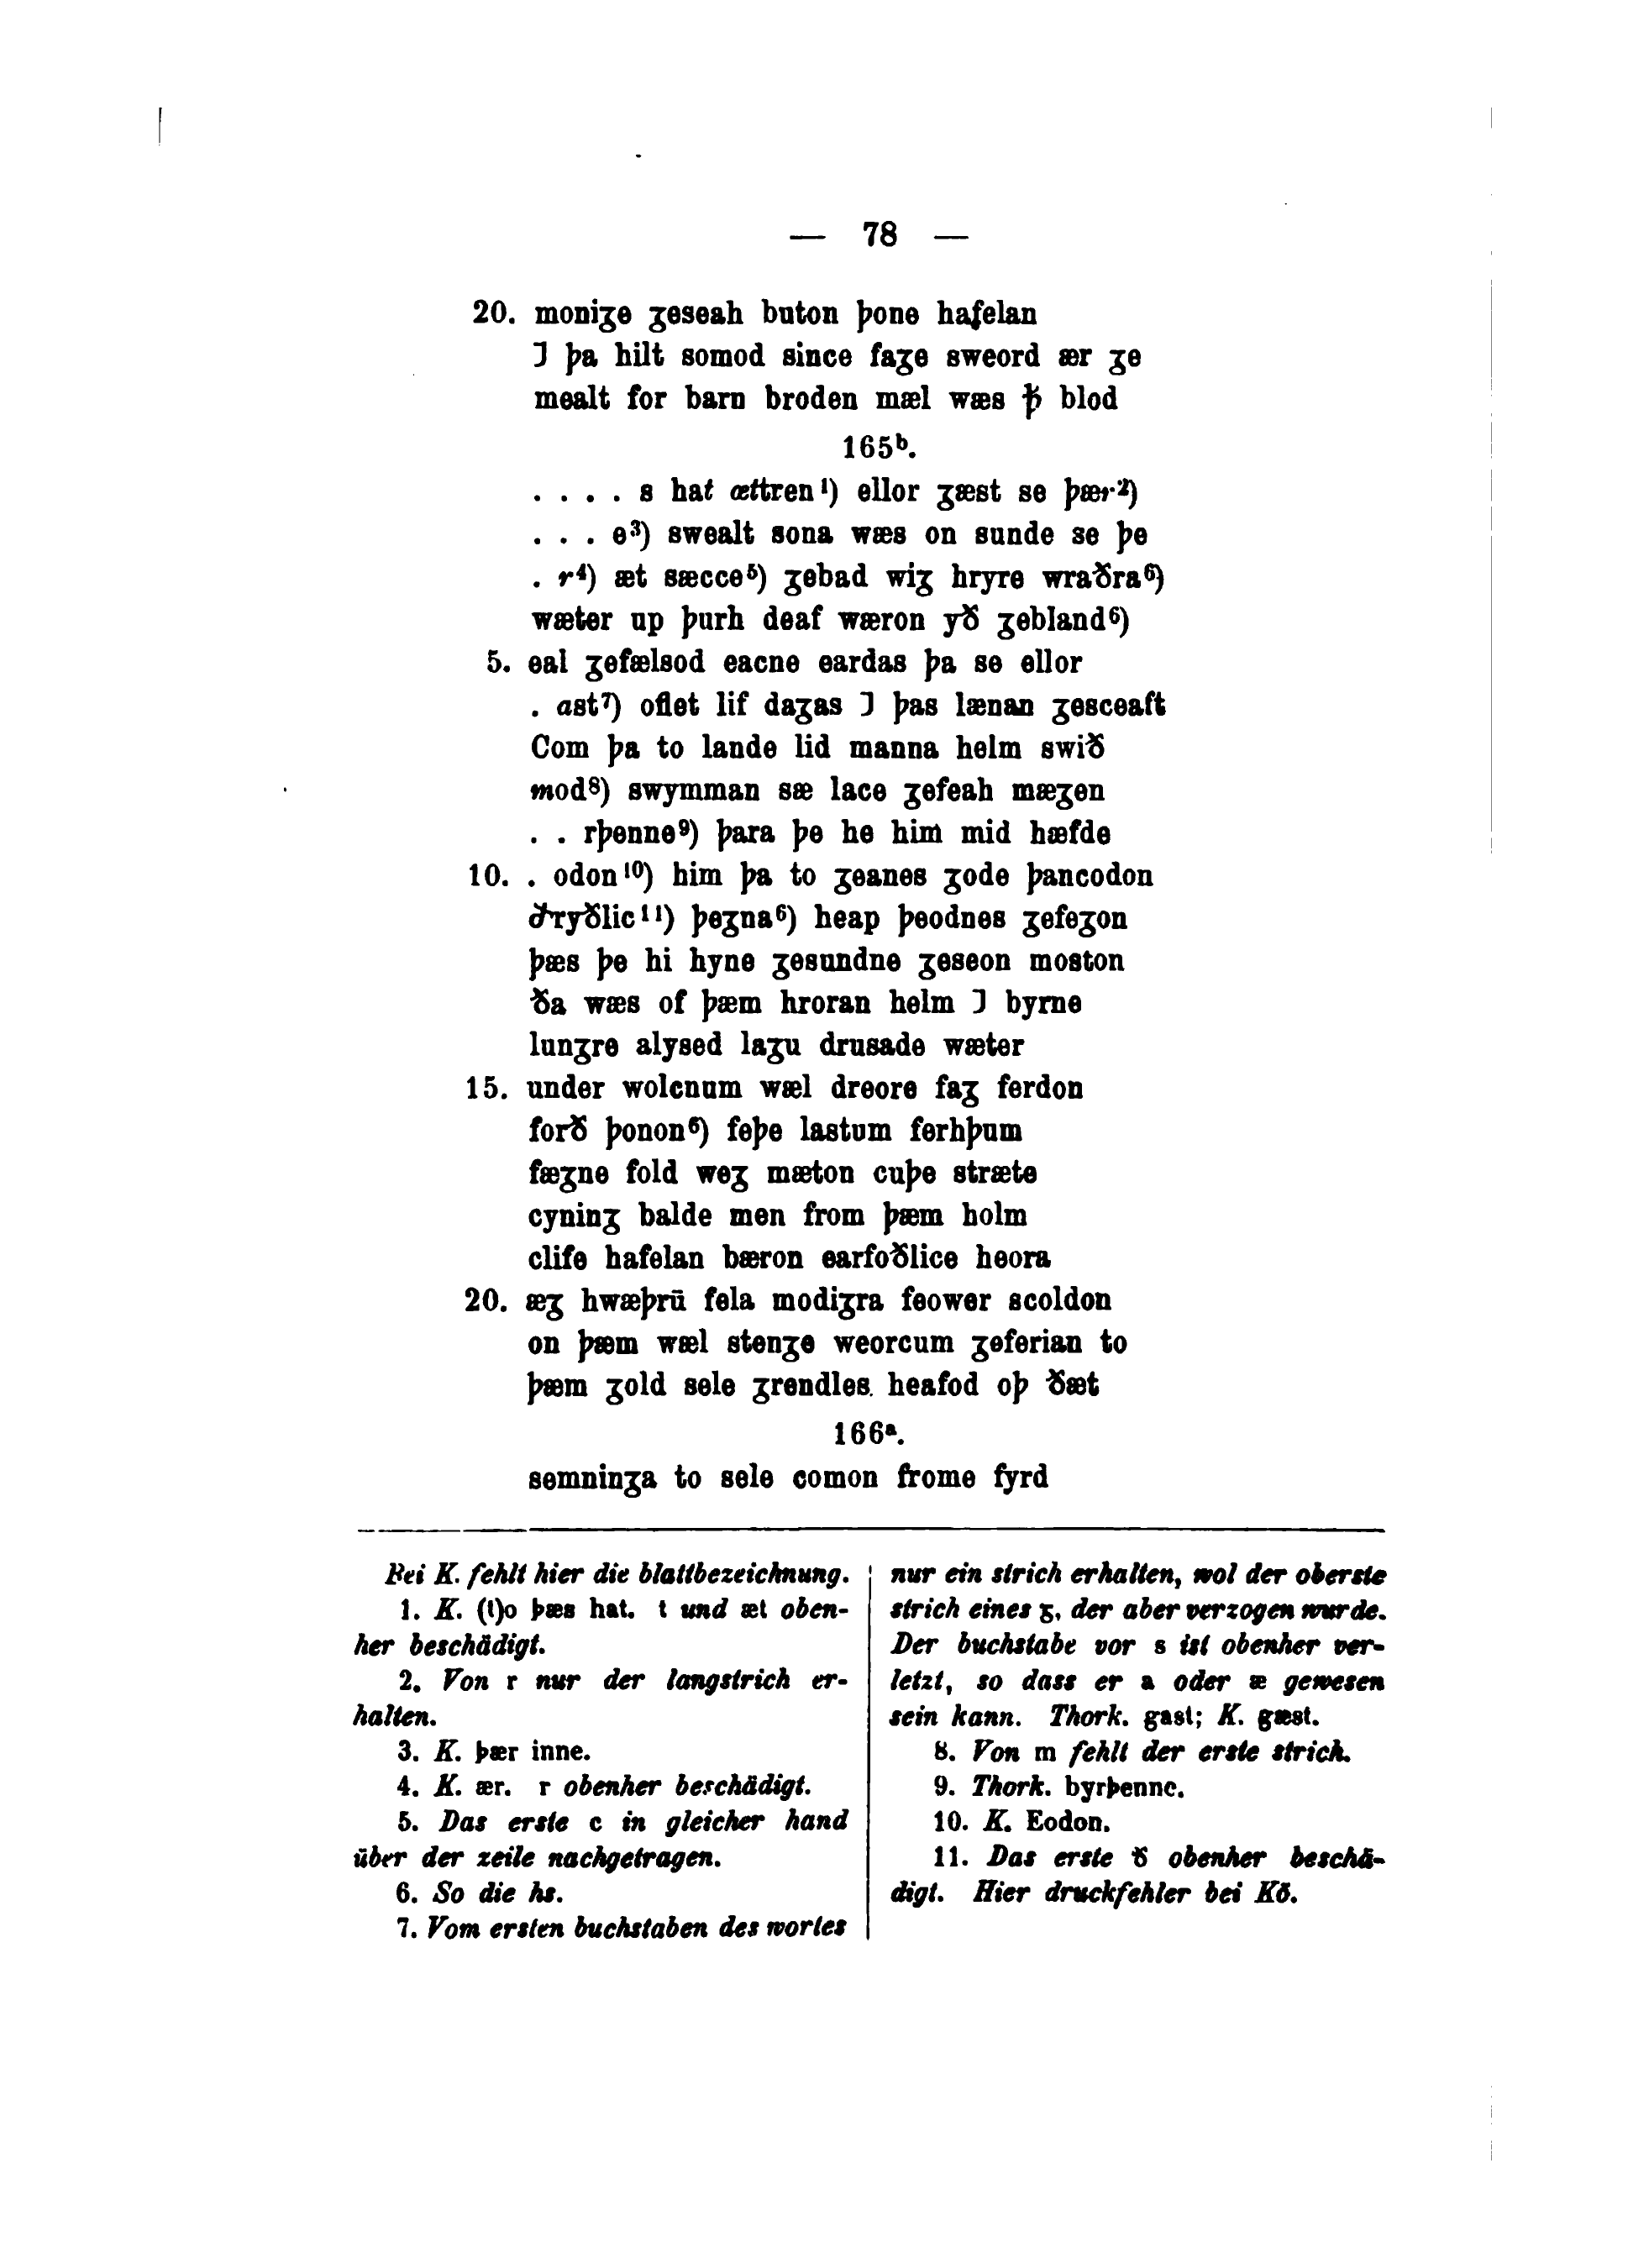 — 78 —
20. moniʒe ʒeseah buton þone hafelan
⁊ þa hilt somod since faʒe sweord ær ʒe
mealt for barn broden mæl wæs ꝥ blod
165ᵇ.
. . . . s hat ættren¹) ellor ʒæst se þær²)
. . . e³) swealt sona wæs on sunde se þe
. r⁴) æt sæcce⁵) ʒebad wiʒ hryre wraðra⁶)
wæter up þurh deaf wæron yð ʒebland⁶)
5. eal ʒefælsod eacne eardas þa se ellor
. ast⁷) oflet lif daʒas ⁊ þas lænan ʒesceaft
Com þa to lande lid manna helm swið
mod⁸) swymman sæ lace ʒefeah mæʒen
. . rþenne⁹) þara þe he him mid hæfde
10. . odon¹⁰) him þa to ʒeanes ʒode þancodon
ðryðlic¹¹) þeʒna⁶) heap þeodnes ʒefeʒon
þæs þe hi hyne ʒesundne ʒeseon moston
ða wæs of þæm hroran helm ⁊ byrne
lunʒre alysed laʒu drusade wæter
15. under wolcnum wæl dreore faʒ ferdon
forð þonon⁶) feþe lastum ferhþum
fæʒne fold weʒ mæton cuþe stræte
cyninʒ balde men from þæm holm
clife hafelan bæron earfoðlice heora
20. æʒ hwæþrū fela modiʒra feower scoldon
on þæm wæl stenʒe weorcum ʒeferian to
þæm ʒold sele ʒrendles heafod oþ ðæt
166ᵃ.
semninʒa to sele comon frome fyrd
Bei K. fehlt hier die blattbezeichnung.
1. K. (t)o þæs hat. t und æt oben-
her beschädigt.
2. Von r nur der langstrich er-
halten.
3. K. þær inne.
4. K. ær. r obenher beschädigt.
5. Das erste c in gleicher hand
über der zeile nachgetragen.
6. So die hs.
7. Vom ersten buchstaben des wortes
nur ein strich erhalten, wol der oberste
strich eines ʒ, der aber verzogen wurde.
Der buchstabe vor s ist obenher ver-
letzt, so dass er a oder æ gewesen
sein kann. Thork. gast; K. gæst.
8. Von m fehlt der erste strich.
9. Thork. byrþenne.
10. K. Eodon.
11. Das erste ð obenher beschä-
digt. Hier druckfehler bei Kö.